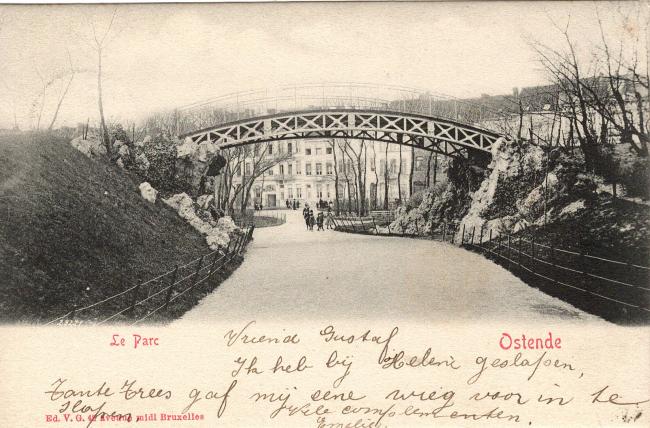 Le Parc
Ostende
Vriend Gustaf
Ik heb bij Helene geslapen,
Tante Trees gaf mij eene wieg voor in te
slapen,
Vele complementen.
Emelie
Ed. V. G. midi Bruxelles